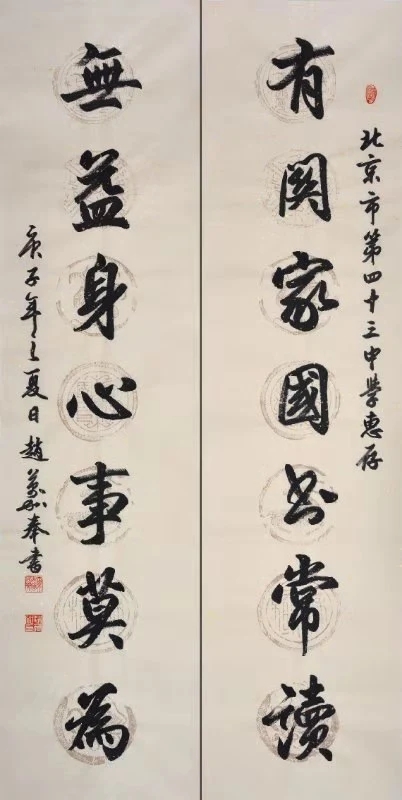 北京市第四十三中學惠存
有關家國書常讀
無益身心事莫為
庚子年之夏日趙奉書